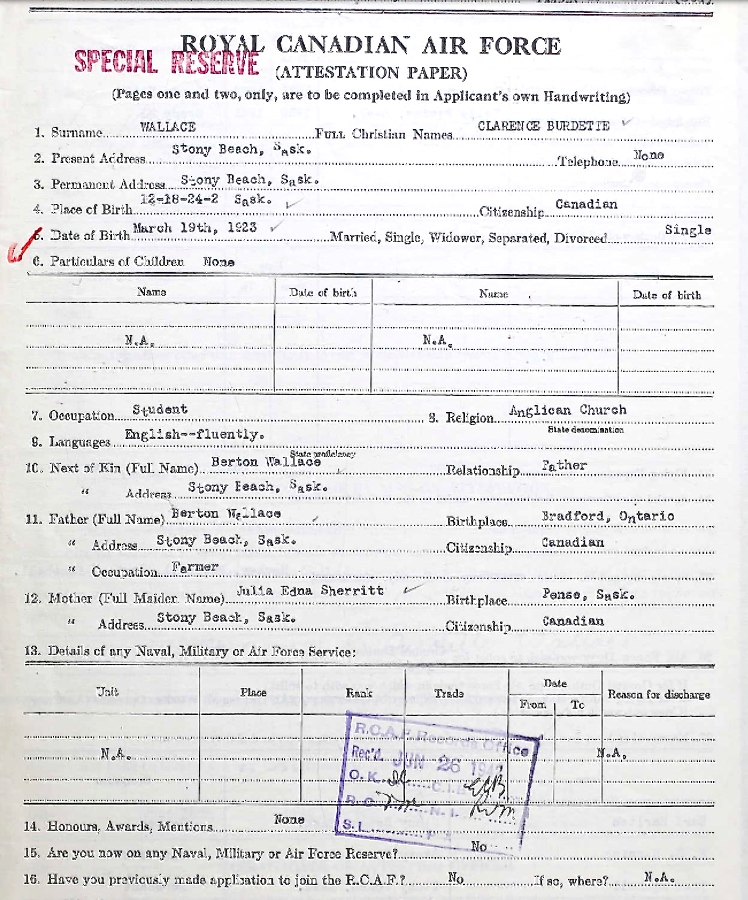 ROYAL CANADIAN AIR FORCE
SPECIAL RESERVE (ATTESTATION PAPER)
(Pages one and two, only, are to be completed in Applicant's own Handwriting)
1. Surname WALLACE FULL Christian Names CLARENCE BURDETTE
2. Present Address Stony Beach, Sask. Telephone None
3. Permanent Address Stony Beach, Sask.
4. Place of Birth 12-18-24-2 Sask. Citizenship Canadian
5. Date of Birth March 19th, 1923 Married, Single, Widower, Separated, Divorced Single
6. Particulars of Children None
Name Date of birth Name Date of birth
N.A. N.A.
7. Occupation Student 8. Religion Anglican Church
State denomination
9. Languages English--fluently.
State proficiency
10. Next of Kin (Full Name) Berton Wallace Relationship Father
" Address Stony Beach, Sask.
11. Father (Full Name) Berton Wallace Birthplace Bradford, Ontario
" Address Stony Beach, Sask. Citizenship Canadian
" Occupation Farmer
12. Mother (Full Maiden Name) Julia Edna Sherritt Birthplace Pense, Sask.
" Address Stony Beach, Sask. Citizenship Canadian
13. Details of any Naval, Military or Air Force Service:
Unit Place Rank Trade Date Reason for discharge
From To
R.C.A.F. Records Office
N.A. N.A.
Rec'd. JUN 26
O.K. C.I.
R.C. N.I.
S.I.
14. Honours, Awards, Mentions None
15. Are you now on any Naval, Military or Air Force Reserve? No
16. Have you previously made application to join the R.C.A.F.? No If so, where? N.A.